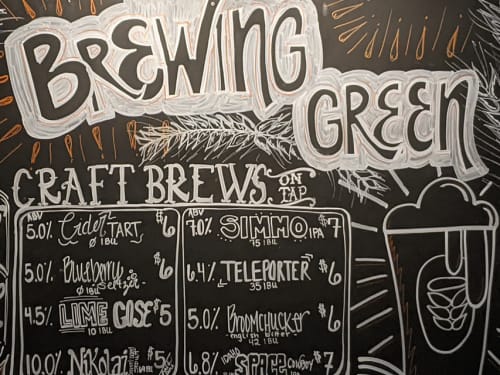 BREWING
GREEN
CRAFT BREWS ON TAP
ABV
5.0% Cider-TART $6
0 IBU
5.0% Blueberry Seltzer $6
0 IBU
4.5% LIME GOSE $5
10 IBU
10.0% Nikolai $5
ABV
7.0% SIMMO IPA $7
75 IBU
6.4% TELEPORTER $6
35 IBU
5.0% Broomchucker $6
-english bitter-
42 IBU
6.8% IDAHO SPACE COWBOY $7